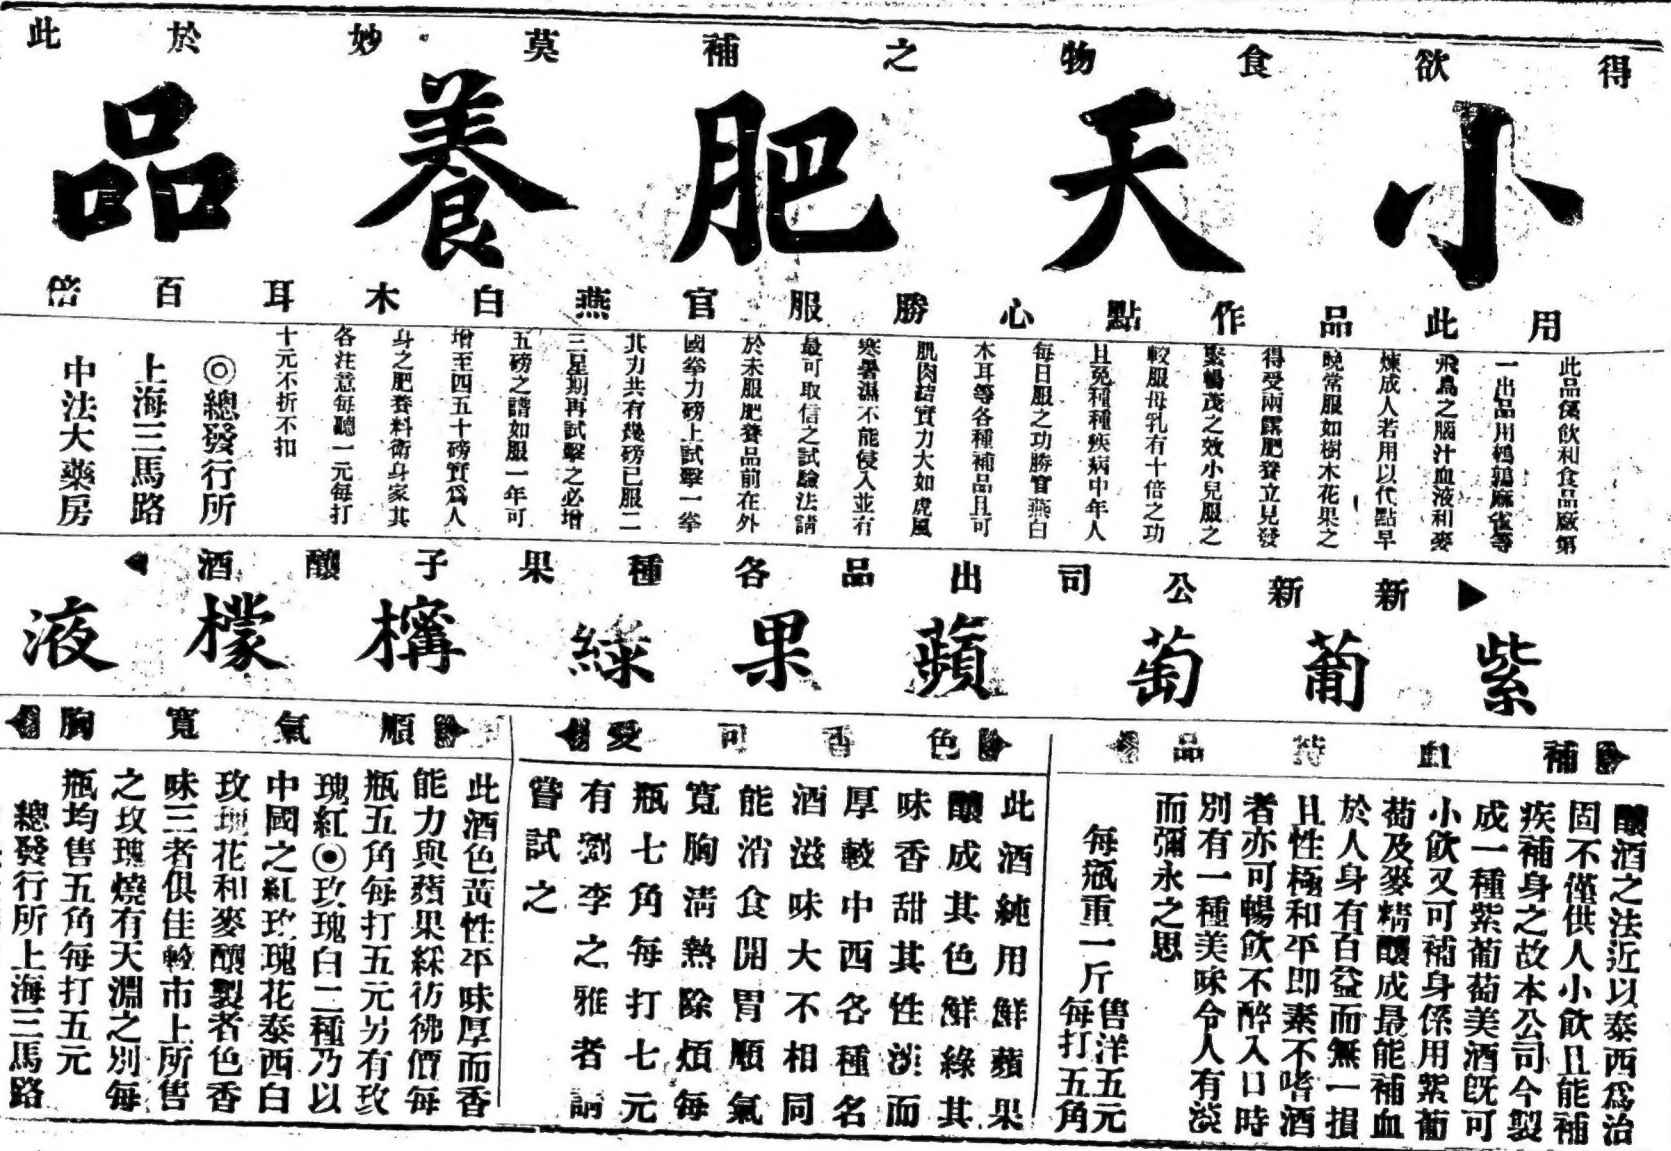 得欲食物之補莫妙於此
小天肥養品
用此品作點心勝服官燕白木耳百倍
此品係飲和食品廠第
一出品用鵪鶉麻雀等
飛鳥之腦汁血液和麥
煉成人若用以代點早
晚常服如樹木花果之
得受雨露肥養立見發
榮暢茂之效小兒服之
較服母乳有十倍之功
且免種種疾病中年人
每日服之功勝官燕白
木耳等各種補品且可
肌肉結實力大如虎風
寒暑濕不能侵入並有
最可取信之試驗法請
於未服肥養品前在外
國拳力磅上試擊一拳
其力共有幾磅已服二
三星期再試擊之必增
五磅之譜如服一年可
增至四五十磅實爲人
身之肥養料衛身家其
各注意每聽一元每打
十元不折不扣
◎總發行所
上海三馬路
中法大藥房
新新公司出品各種果子釀酒
紫葡萄 蘋果綠 檸檬液
補血特品
釀酒之法近以泰西爲治
固不僅供人小飲且能補
疾補身之故本公司今製
成一種紫葡萄美酒旣可
小飲又可補身係用紫葡
萄及麥精釀成最能補血
於人身有百益而無一損
且性極和平即素不嗜酒
者亦可暢飲不醉入口時
別有一種美味令人有淡
而彌永之思
每瓶重一斤售洋五元
每打五角
色香可愛
此酒純用鮮蘋果
釀成其色鮮綠其
味香甜其性淡而
厚較中西各種名
酒滋味大不相同
能消食開胃順氣
寬胸淸熱除煩每
瓶七角每打七元
有劉李之雅者請
嘗試之
順氣寬胸
此酒色黃性平味厚而香
能力與蘋果綠彷彿價每
瓶五角每打五元另有玫
瑰紅◉玫瑰白二種乃以
中國之紅玫瑰花泰西白
玫瑰花和麥釀製者色香
味三者俱佳較市上所售
之玫瑰燒有天淵之別每
瓶均售五角每打五元
總發行所上海三馬路